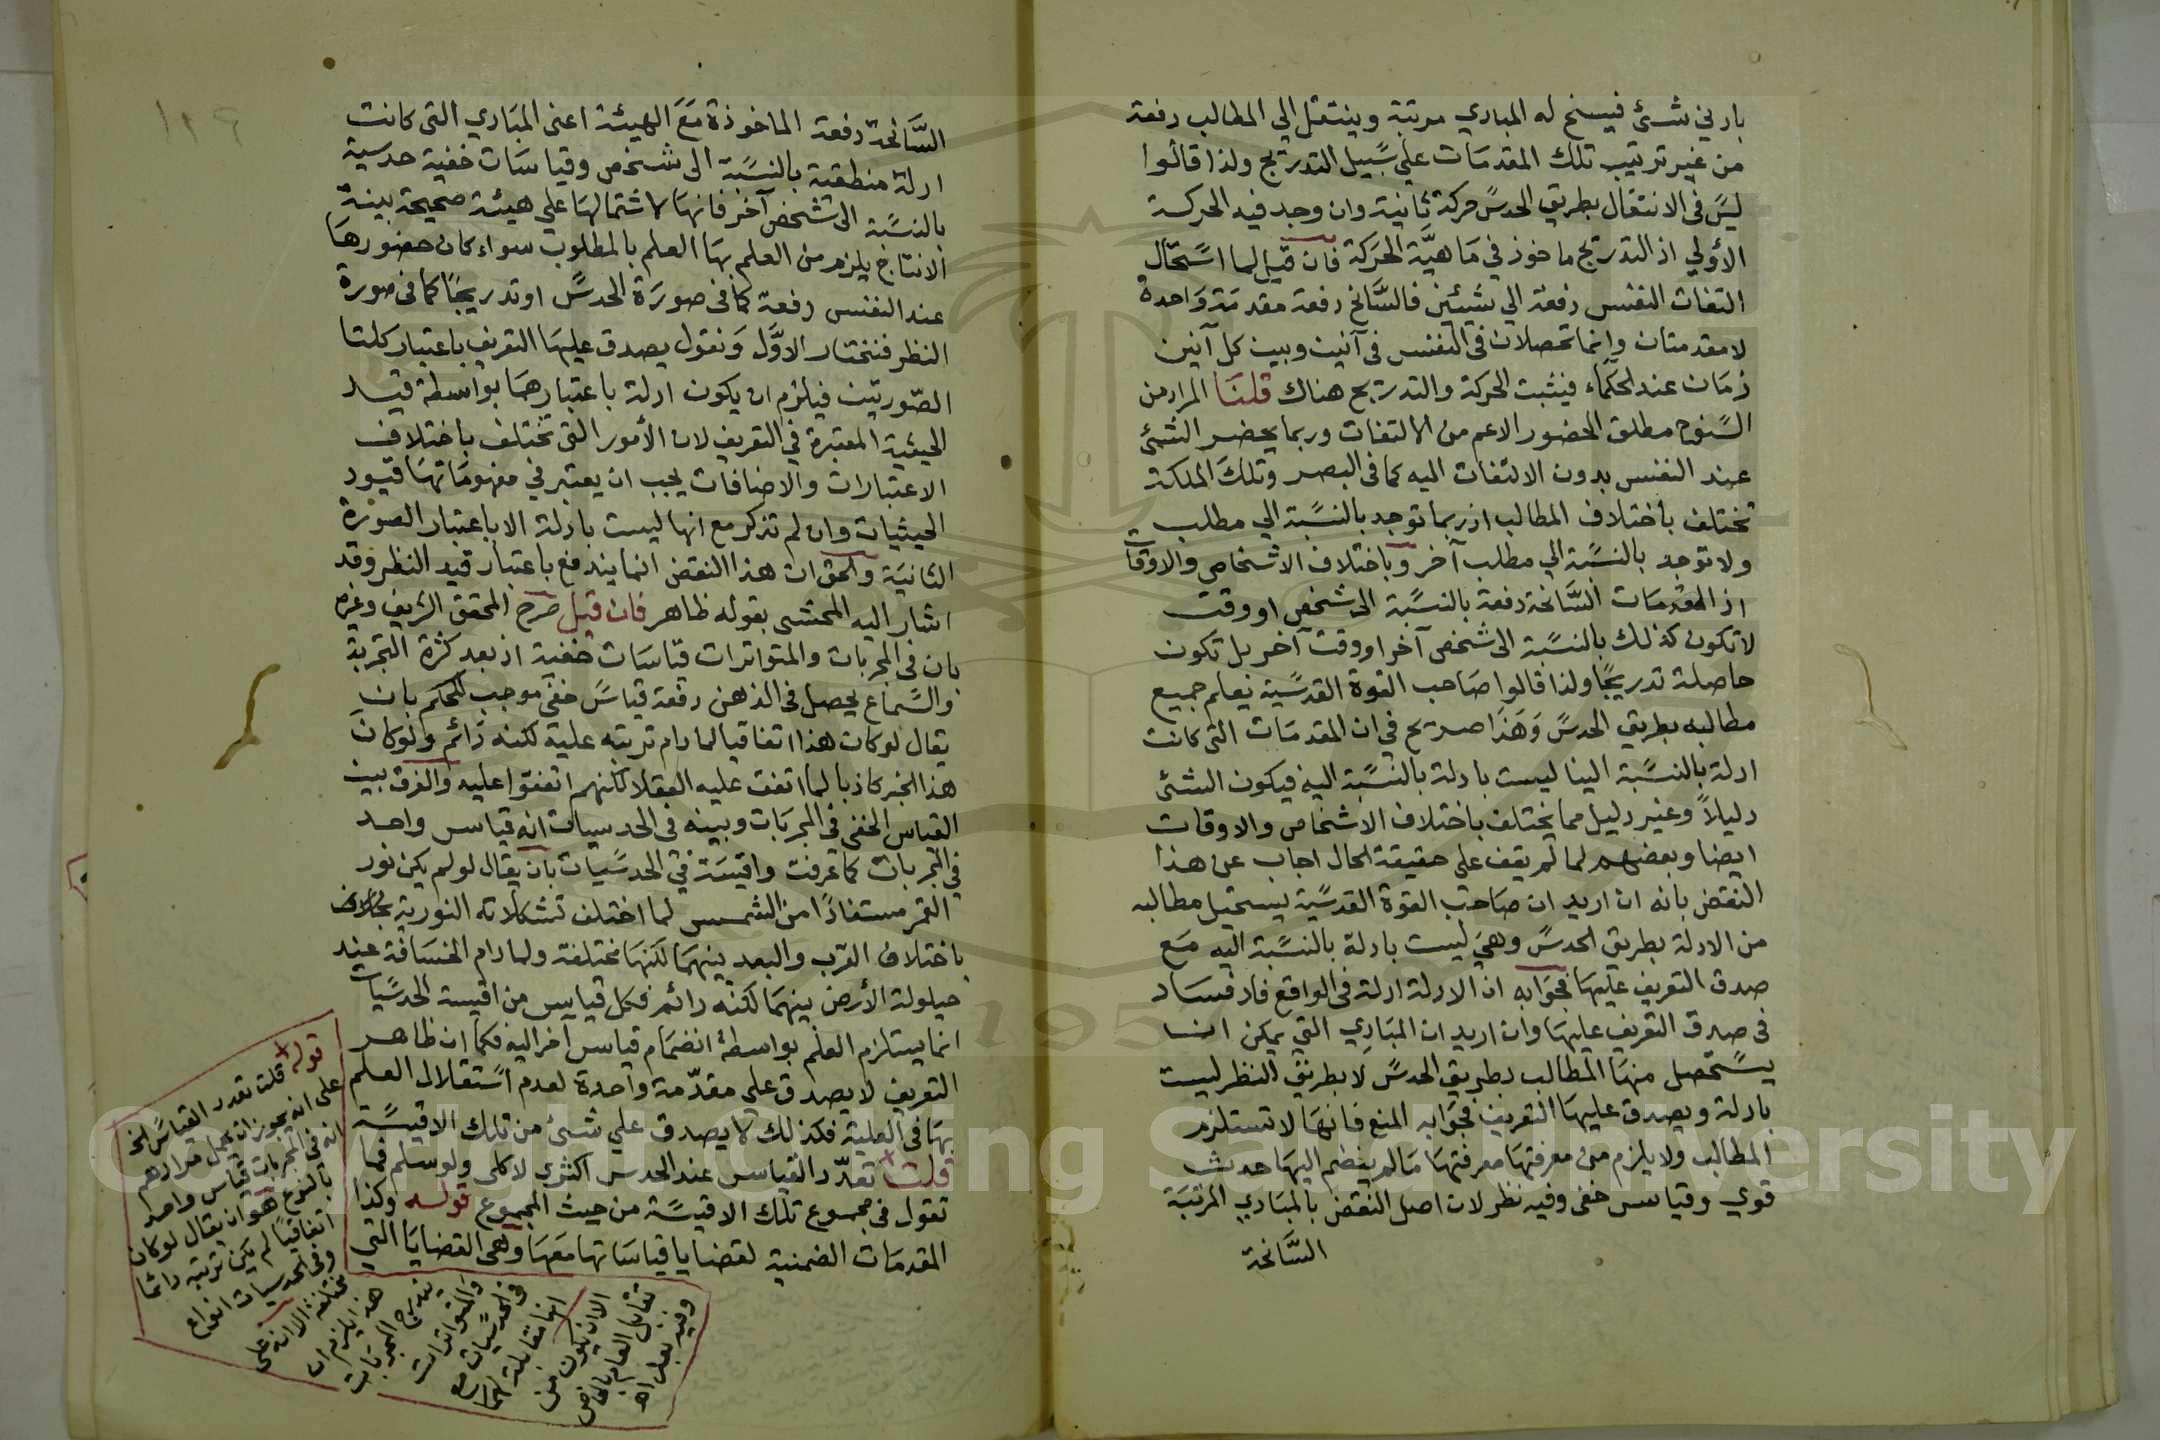 بادني شئ فيسنح له المبادي مرتبة وينتقل الي المطالب دفعة
من غير ترتيب تلك المقدمات علي سبيل التدريج ولذا قالوا
ليس في الانتقال بطريق الحدس حركة ثانية وان وجد فيه الحركة
الأولي اذ التدريج ماخوذ في ماهية الحركة فان قيل لما استحال
التفات النفس دفعة الي شيئين فالسانح دفعة مقدمة واحدة
لا مقدمتان وانما تحصلان في النفس في آنين وبين كل آنين
زمان عند الحكماء فيثبت الحركة والتدريج هناك قلنا المراد من
السنوح مطلق الحضور الاعم من الالتفات وربما يحضر الشئ
عند النفس بدون الالتفات اليه كما في البصر وتلك الملكة
تختلف باختلاف المطالب اذ ربما توجد بالنسبة الي مطلب
ولا توجد بالنسبة الي مطلب آخر وباختلاف الاشخاص والاوقات
اذ المقدمات السانحة دفعة بالنسبة الى شخص او وقت
لا تكون كذلك بالنسبة الى شخص آخر او وقت آخر بل تكون
حاصلة تدريجا ولذا قالوا صاحب القوة القدسية يعلم جميع
مطالبه بطريق الحدس وهذا صريح في ان المقدمات التي كانت
ادلة بالنسبة الينا ليست بادلة بالنسبة اليه فيكون الشئ
دليلاً وغير دليل مما يختلف باختلاف الاشخاص والاوقات
ايضا وبعضهم لما لم يقف على حقيقة الحال اجاب عن هذا
النقض بانه ان اريد ان صاحب القوة القدسية يستحيل مطالبه
من الادلة بطريق الحدس وهي ليست بادلة بالنسبة اليه مع
صدق التعريف عليها فجوابه ان الادلة ادلة في الواقع فلا فساد
في صدق التعريف عليها وان اريد ان المبادي التي يمكن ان
يستحصل منها المطالب بطريق الحدس لا بطريق النظر ليست
بادلة ويصدق عليها التعريف فجوابه المنع فانها لا تستلزم
المطالب ولا يلزم من معرفتها معرفتها ما لم ينضم اليها حدس
قوي وقياس خفي وفيه نظر لان اصل النقض بالمبادي المرتبة
السانحة
السانحة دفعة الماخوذة مع الهيئة اعني المبادي التي كانت
ادلة منطقية بالنسبة الى شخص وقياسات خفية حدسية
بالنسبة الى شخص آخر فانها لاشتمالها علي هيئة صحيحة بينة
الانتاج يلزم من العلم بها العلم بالمطلوب سواء كان حضورها
عند النفس دفعة كما في صورة الحدس او تدريجا كما في صورة
النظر فنختار الاول ونقول يصدق عليها التعريف باعتبار كلتا
الصورتين فيلزم ان يكون ادلة باعتبارهما بواسطة قيد
الحيثية المعتبرة في التعريف لان الأمور التي تختلف باختلاف
الاعتبارات والاضافات يجب ان يعتبر في مفهوماتها قيود
الحيثيات وان لم تذكر مع انها ليست بادلة الا باعتبار الصورة
الثانية والحق ان هذا النقض انما يندفع باعتبار قيد النظر وقد
اشار اليه المحشي بقوله ظاهر فان قيل صرح المحقق الشريف وغيره
بان في المجربات والمتواترات قياسات خفية اذ بعد كثرة التجربة
والسماع يحصل في الذهن دفعة قياس خفي موجب للحكم بان
يقال لو كان هذا اتفاقيا لما دام ترتبه عليه لكنه دائم ولو كان
هذا الخبر كاذبا لما اتفق عليه العقلا لكنهم اتفقوا عليه والفرق بين
القياس الخفي في المجربات وبينه في الحدسيات انه قياس واحد
في المجربات كما عرفت واقيسة في الحدسيات بان يقال لو لم يكن نور
القمر مستفادا من الشمس لما اختلف تشكلاته النورية
باختلاف القرب والبعد بينهما لكنها مختلفة ولما دام انخسافه عند
حيلولة الأرض بينهما لكنه دائم فكل قياس من اقيسة الحدسيات
انما يستلزم العلم بواسطة انضمام قياس آخر اليه فكما ان ظاهر
التعريف لا يصدق علي مقدمة واحدة لعدم استقلالها العلم
بها في العلية فكذلك لا يصدق علي شئ من تلك الاقيسة
قلت تعدد القياس عند الحدس اكثري لا كلي ولو سلم فما
تقول في مجموع تلك الاقيسة من حيث المجموع قوله وكذا
المقدمات الضمنية لقضايا قياساتها معها وهي القضايا التي
قوله قلت تعدد القياس الخ
على انه يجوز ان يحمل مرادهم
انه في المجربات قياس واحد
بالنوع هو ان يقال لو كان
اتفاقيا لم يكن ترتبه دائما
وفي الحدسيات انواع
مختلفة الا انه على
هذا يلزم ان
يندرج المجربات
والمتواترات
في الحدسيات مع
انها مقابلة لها
الا ان يكون من
تقابل العام بالخاص
وفيه بعد اه
١١٩
Copyright © King Saud University
1957